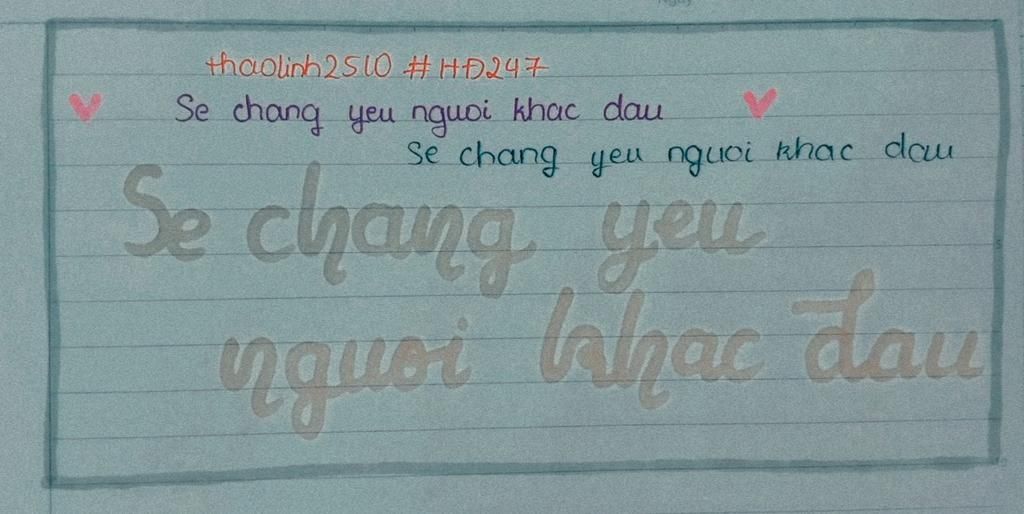 thaolinh2510 #HĐ247
Se chang yeu nguoi khac dau
Se chang yeu nguoi khac dau
Se chang yeu
nguoi khac đau